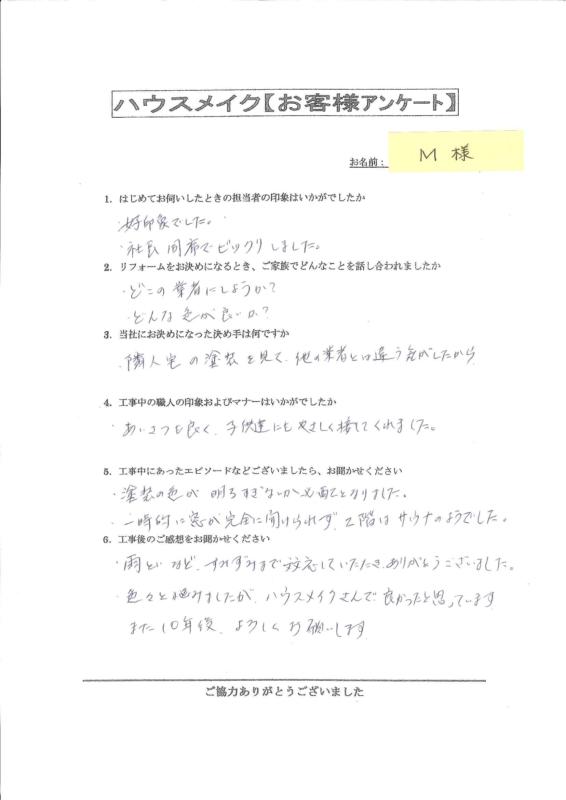 ハウスメイク【お客様アンケート】
お名前： M 様
1. はじめてお伺いしたときの担当者の印象はいかがでしたか
・好印象でした。
・社長同席でビックリしました。
2. リフォームをお決めになるとき、ご家族でどんなことを話し合われましたか
・どこの業者にしようか?
・どんな色が良いか?
3. 当社にお決めになった決め手は何ですか
・隣人宅の塗装を見て、他の業者とは違う気がしたから
4. 工事中の職人の印象およびマナーはいかがでしたか
・あいさつも良く、子供達にもやさしく接してくれました。
5. 工事中にあったエピソードなどございましたら、お聞かせください
・塗装の色が明るすぎないか心配となりました。
・一時的に窓が完全に開けられず、2階はサウナのようでした。
6. 工事後のご感想をお聞かせください
・雨といなど、すみずみまで対応していただき、ありがとうございました。
・色々と悩みましたが、ハウスメイクさんで良かったと思っています
また10年後、よろしくお願いします
ご協力ありがとうございました